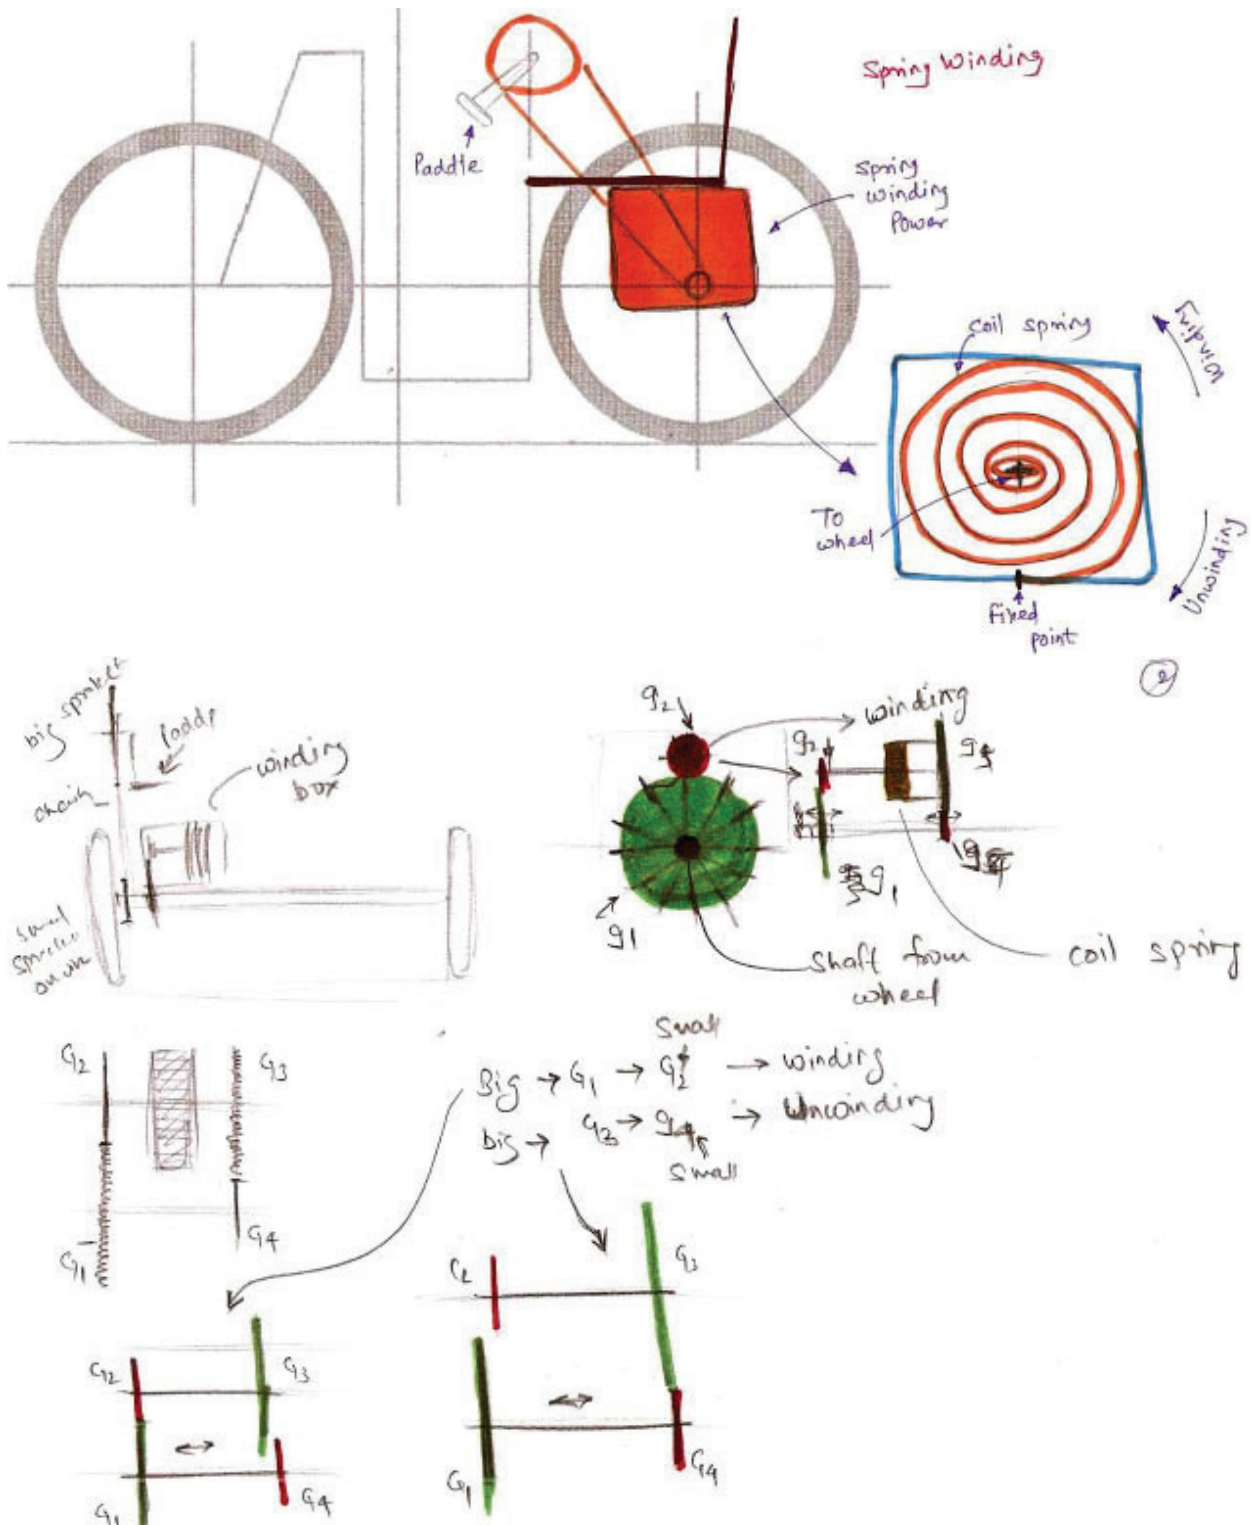 Spring Winding
Paddle
Spring
winding
Power
coil spring
Winding
To
wheel
Unwinding
fixed
point
2
big sprocket
Paddle
chain
winding
box
small
g2
winding
g2
g1
g1
shaft from
wheel
coil spring
G2
G3
G1
G4
Small
Big → G1 → G2 → winding
big → G3 → g4 → Unwinding
small
G2
G3
G1
G4
G2
G3
G1
G4